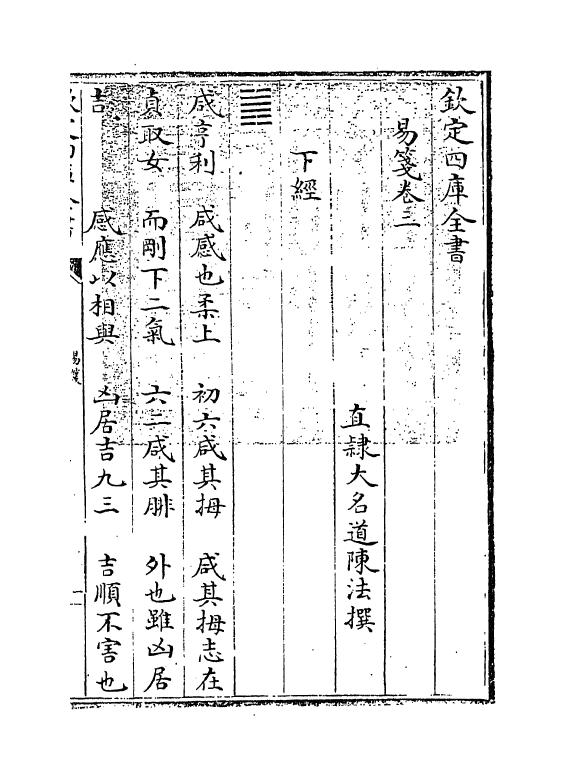 欽定四庫全書
易箋卷三
直隷大名道陳法撰
下經
咸亨利　咸感也柔上　初六咸其拇　咸其拇志在
貞取女　而剛下二氣　六二咸其腓　外也雖凶居
吉　感應以相與　凶居吉九三　吉順不害也
易箋